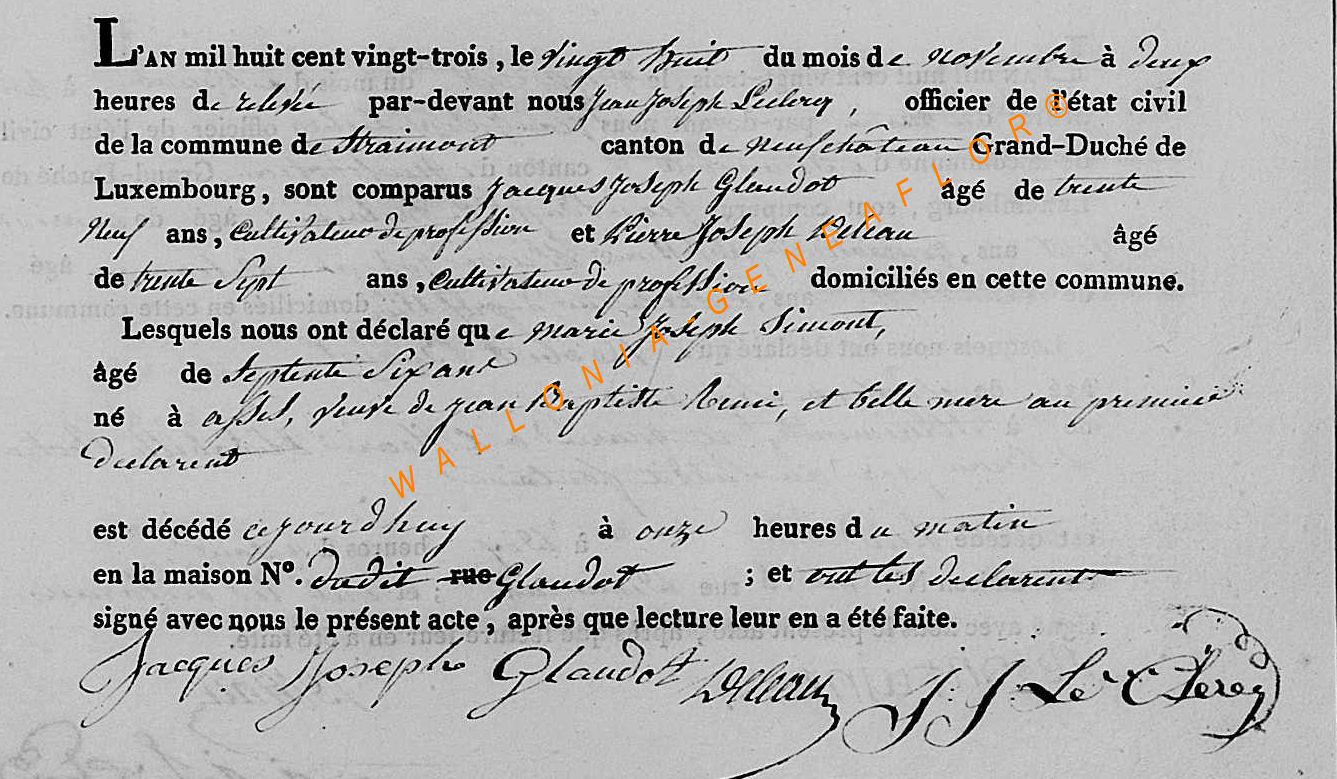 L'AN mil huit cent vingt-trois, le vingt huit du mois de novembre à deux
heures de relevée par-devant nous Jean Joseph Leclercq, officier de l'état civil
de la commune de Straimont canton de neufchâteau Grand-Duché de
Luxembourg, sont comparus Jacques Joseph Glaudot âgé de trente
Neuf ans, Cultivateur de profession et Pierre Joseph âgé
de trente Sept ans, Cultivateur de profession domiciliés en cette commune.
Lesquels nous ont déclaré que marie Joseph Simont,
âgé de Septente Six ans
né à veuve de jean Baptiste et belle mere au premier
declarent
est décédé cejourd'huy à onze heures du matin
en la maison N°. dudit rue Glaudot ; et ont les declarent
signé avec nous le présent acte, après que lecture leur en a été faite.
Jacques Joseph Glaudot J J Le Clercq
WALLONIA-GENEAFLOR®